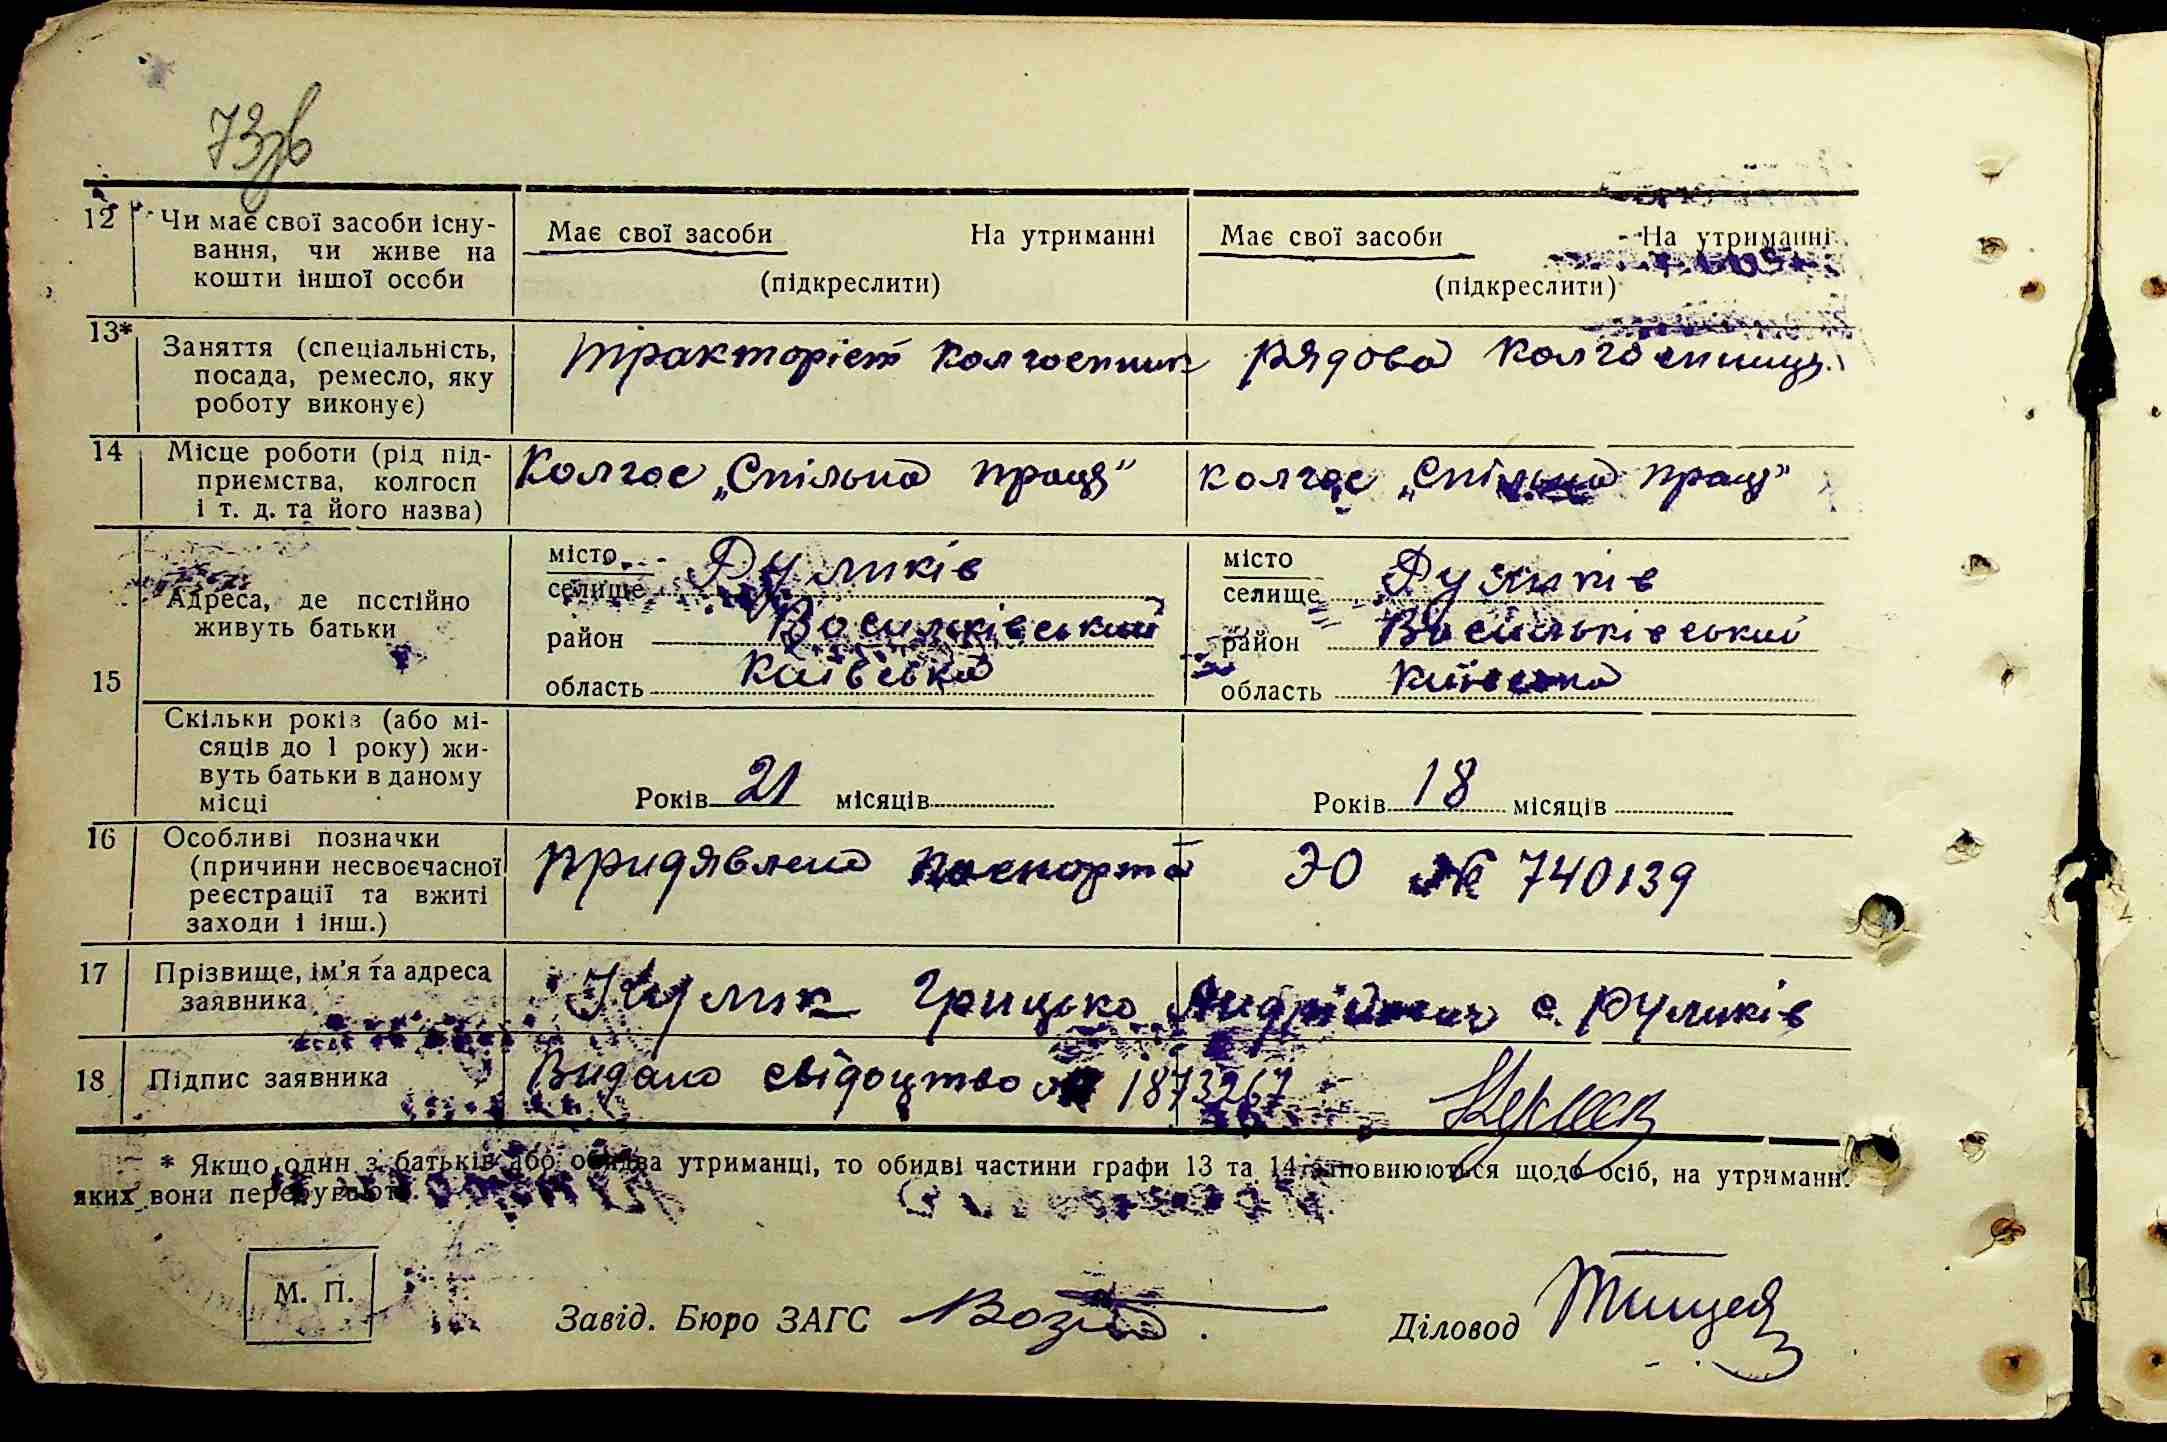 73зв
12 Чи має свої засоби існу-
вання, чи живе на
кошти іншої особи
Має свої засоби На утриманні
(підкреслити)
Має свої засоби На утриманні
(підкреслити)
13* Заняття (спеціальність,
посада, ремесло, яку
роботу виконує)
тракторіст колгоспник
рядова колгоспниця
14 Місце роботи (рід під-
приємства, колгосп
і т. д. та його назва)
Колгос „Спільна праця"
колгос „Спільна праця"
15 Адреса, де постійно
живуть батьки
місто
селище Руликів
район Васильківський
область Київська
місто
селище Руликів
район Васильківський
область Київська
Скільки років (або мі-
сяців до 1 року) жи-
вуть батьки в даному
місці
Років 21 місяців
Років 18 місяців
16 Особливі позначки
(причини несвоєчасної
реєстрації та вжиті
заходи і інш.)
придявлено паспорта ЭО № 740139
17 Прізвище, ім'я та адреса
заявника
Кулик Грицько Андрійович с. Руликів
18 Підпис заявника
Видано свідоцтво № 1873267
* Якщо один з батьків або обидва утриманці, то обидві частини графи 13 та 14 заповнюються щодо осіб, на утриманні
яких вони перебувають.
М. П.
Завід. Бюро ЗАГС
Діловод